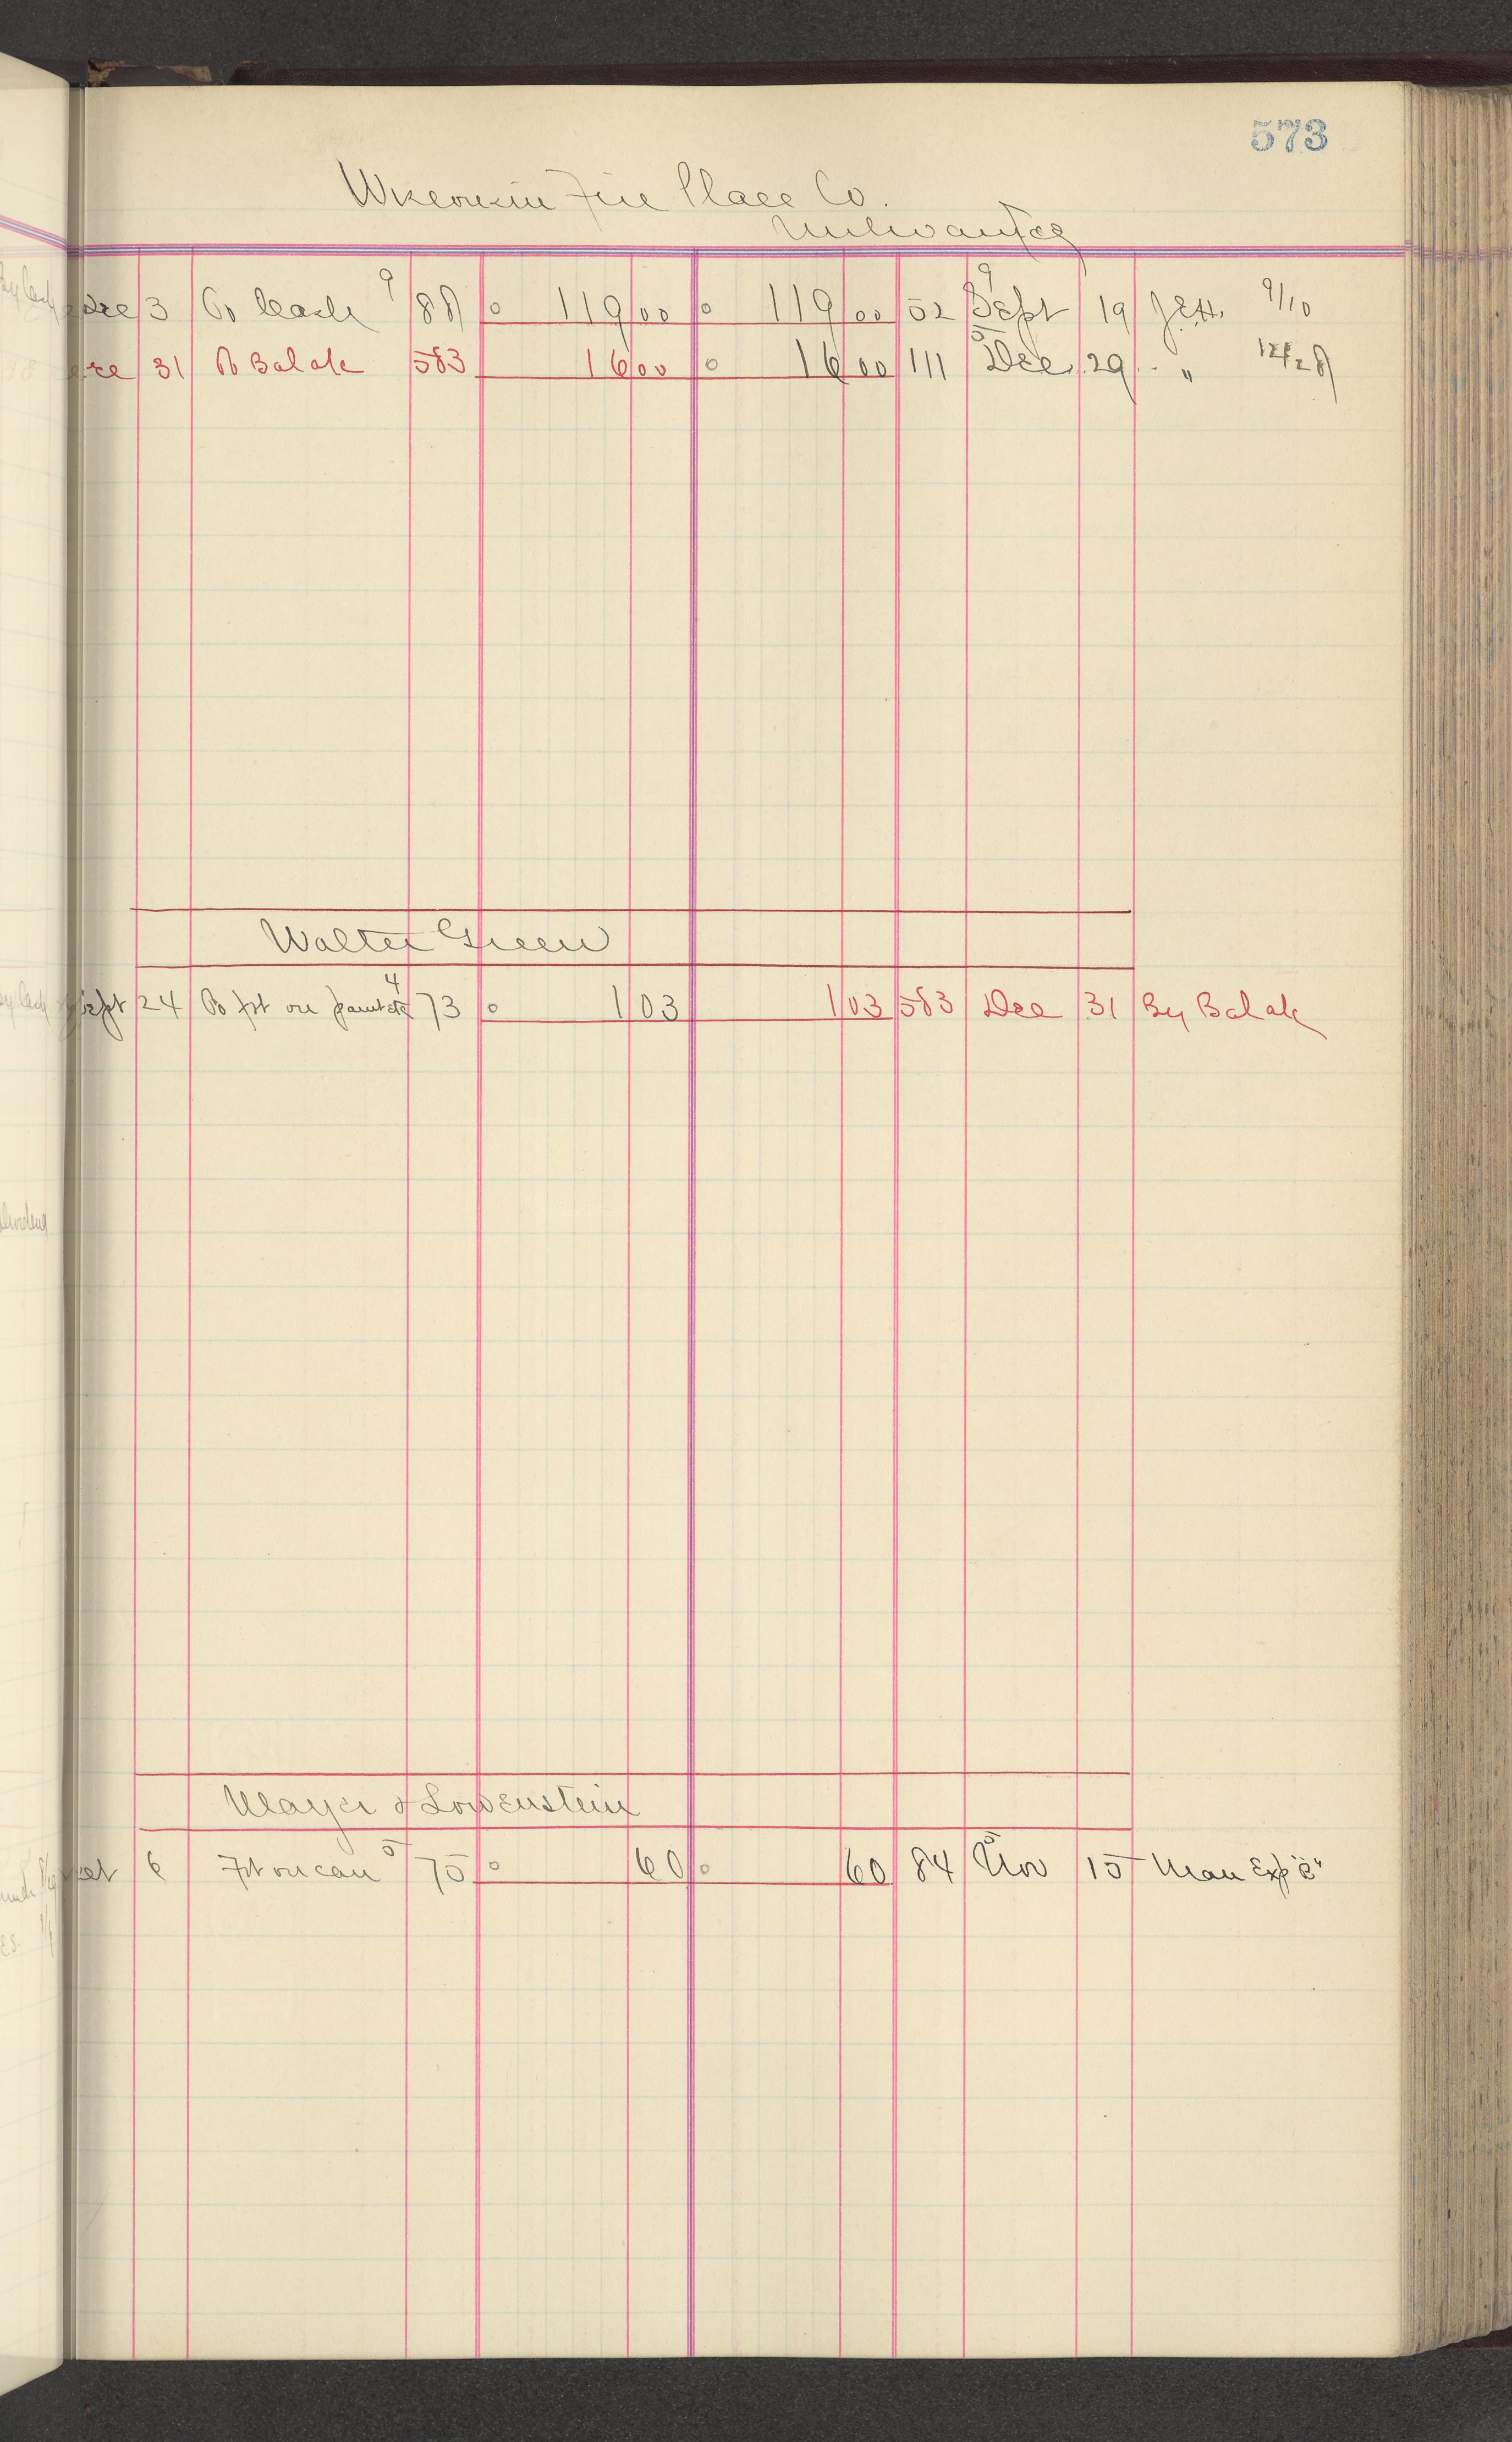 573
Wisconsin Fire Place Co.
Milwaukee
Dec 3 To Cash 9 88 0 119 00 0 119 00 52 9 Sept 19 J.E.H. 9/10
Dec 31 To Balance 583 16 00 0 16 00 111 5 Dec 29 " 12/28
Walter Green
Sept 24 To frt on paint etc 4 73 0 1 03 1 03 583 Dec 31 By Balance
Mayer & Lowenstein
Oct 6 Frt on can 5 75 0 60 0 60 84 5 Nov 15 Man Exp "B"